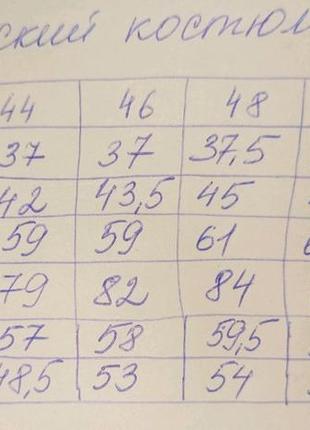 ский костюм
44 46 48
37 37 37,5
42 43,5 45
59 59 61
79 82 84
57 58 59,5
48,5 53 54